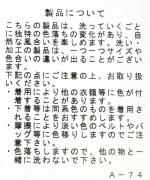 製品について
こちらの製品は、洗っていくごと
に独特の色落ちの変化があり、自
然な風合い感を楽しめます。洗い
加工の製品は、一点一点サイズや
色合いの違いが出ることがござい
ます。
下記の点にご注意の上、お取り扱
いください。
・着用により他の衣類等に色が付
着することがあります。
・下着等は同系色のものを着用さ
れることをおすすめします。
・摩擦により淡い色のベルトやバ
ッグ等に色移りしますのでご注意
下さい。
・色落ちしますので、他の物と一
緒に洗わないで下さい。
A-74